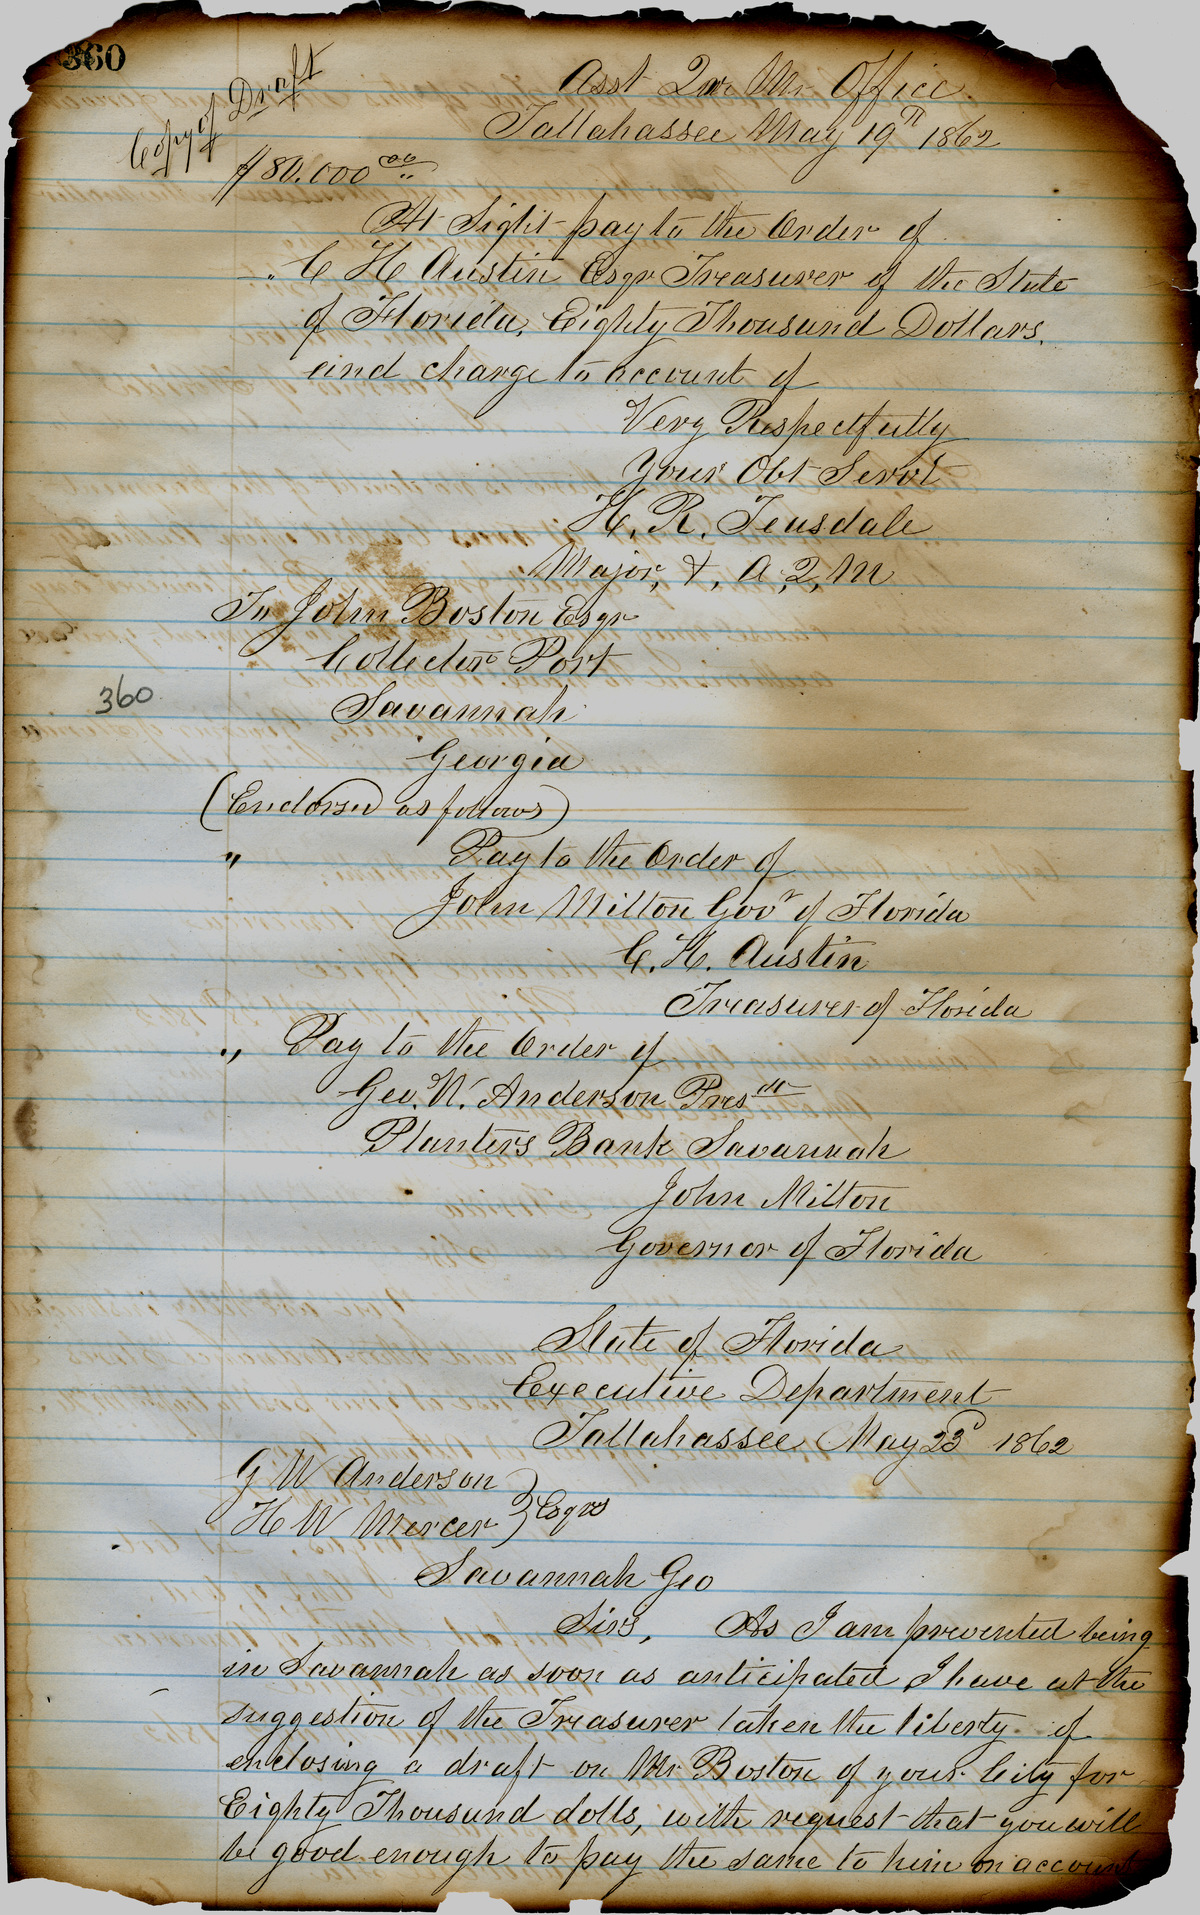 360
Copy of Draft
Asst Qr. Mr. Office
Tallahassee May 19th 1862
$80.000 00
At Sight pay to the Order of
C H Austin Esqr Treasurer of the State
of Florida, Eighty Thousand Dollars.
and charge to account of
Very Respectfully
Your Obt Servt
H. R. Teasdale
Major, &, A, Q, M
To John Boston Esqr
Collector Port
360
Savannah
Georgia
(Endorsed as follows)
" Pay to the Order of
John Milton Govr of Florida
C. H. Austin
Treasurer of Florida
" Pay to the Order of
Geo. W. Anderson Presdt
Planters Bank Savannah
John Milton
Governor of Florida
State of Florida
Executive Department
Tallahassee May 23d 1862
G W Anderson
H W Mercer } Esqrs
Savannah Geo
Sirs, As I am prevented being
in Savannah as soon as anticipated I have at the
suggestion of the Treasurer taken the liberty of
enclosing a draft on Mr Boston of your City for
Eighty Thousand dolls, with request that you will
be good enough to pay the same to him on account